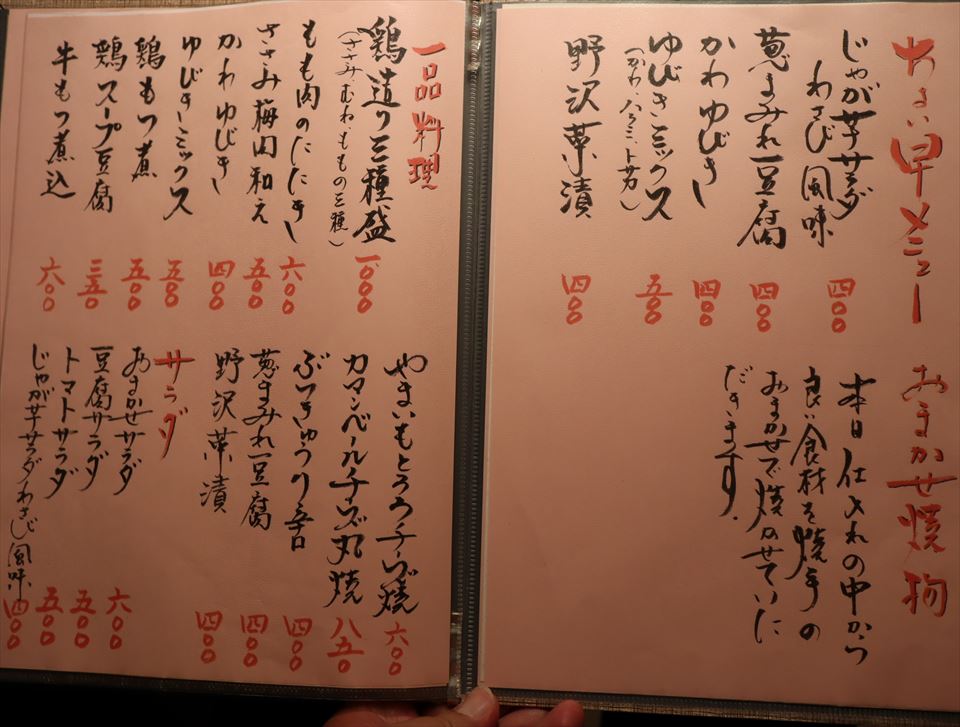 ちょい早メニュー
じゃが芋サラダ
わさび風味 四〇〇
葱まみれ豆腐 四〇〇
かわゆびき 四〇〇
ゆびきミックス 五〇〇
野沢菜漬 四〇〇
おまかせ焼物
本日仕入れの中から
良い食材を焼手の
おまかせで焼かせていた
だきます。
一品料理
鶏造り三種盛 一〇〇〇
（ささみ・むね・ももの三種）
もも肉のたたき 六〇〇
ささみ梅肉和え 五〇〇
かわゆびき 四〇〇
ゆびきミックス 五〇〇
鶏もつ煮 五〇〇
鶏スープ豆腐 三五〇
牛もつ煮込 六〇〇
やまいもとろろチーズ焼 六〇〇
カマンベールチーズ丸焼 八五〇
ぶつきゅうり辛口 四〇〇
葱まみれ豆腐 四〇〇
野沢菜漬 四〇〇
サラダ
おまかせサラダ 六〇〇
豆腐サラダ 五〇〇
トマトサラダ 五〇〇
じゃが芋サラダわさび風味 四〇〇